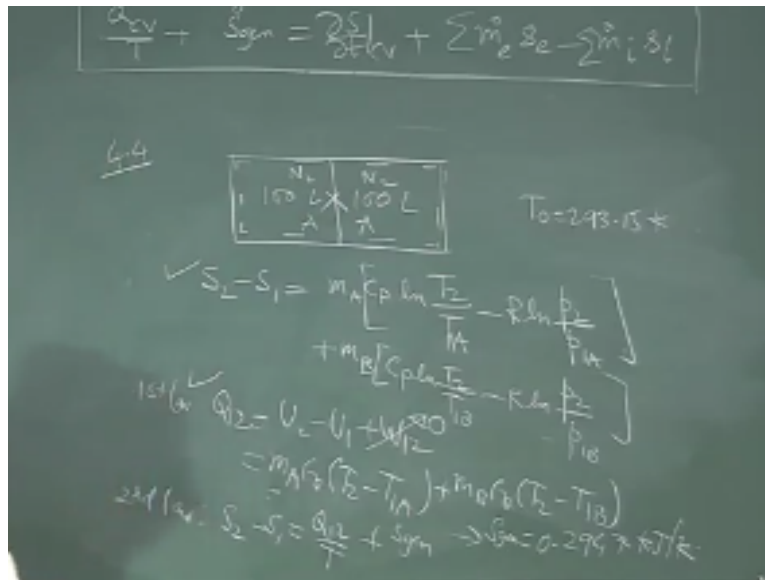 Q̇cv/T + Ṡgen = ∂S/∂t|cv + Σṁe se − Σṁi si
4.4
N2 N2
100 L 100 L
A A
T0=293.15 K
✓ S2−S1 = mA[Cp ln T2/T1A − R ln p2/p1A]
+ mB[Cp ln T2/T1B − R ln p2/p1B]
1st law ✓ Q12 = U2 − U1 + W12 0
= mA Cv(T2 − T1A) + mB Cv(T2 − T1B)
2nd law: S2 − S1 = Q12/T + Sgen → Sgen = 0.294 kJ/K